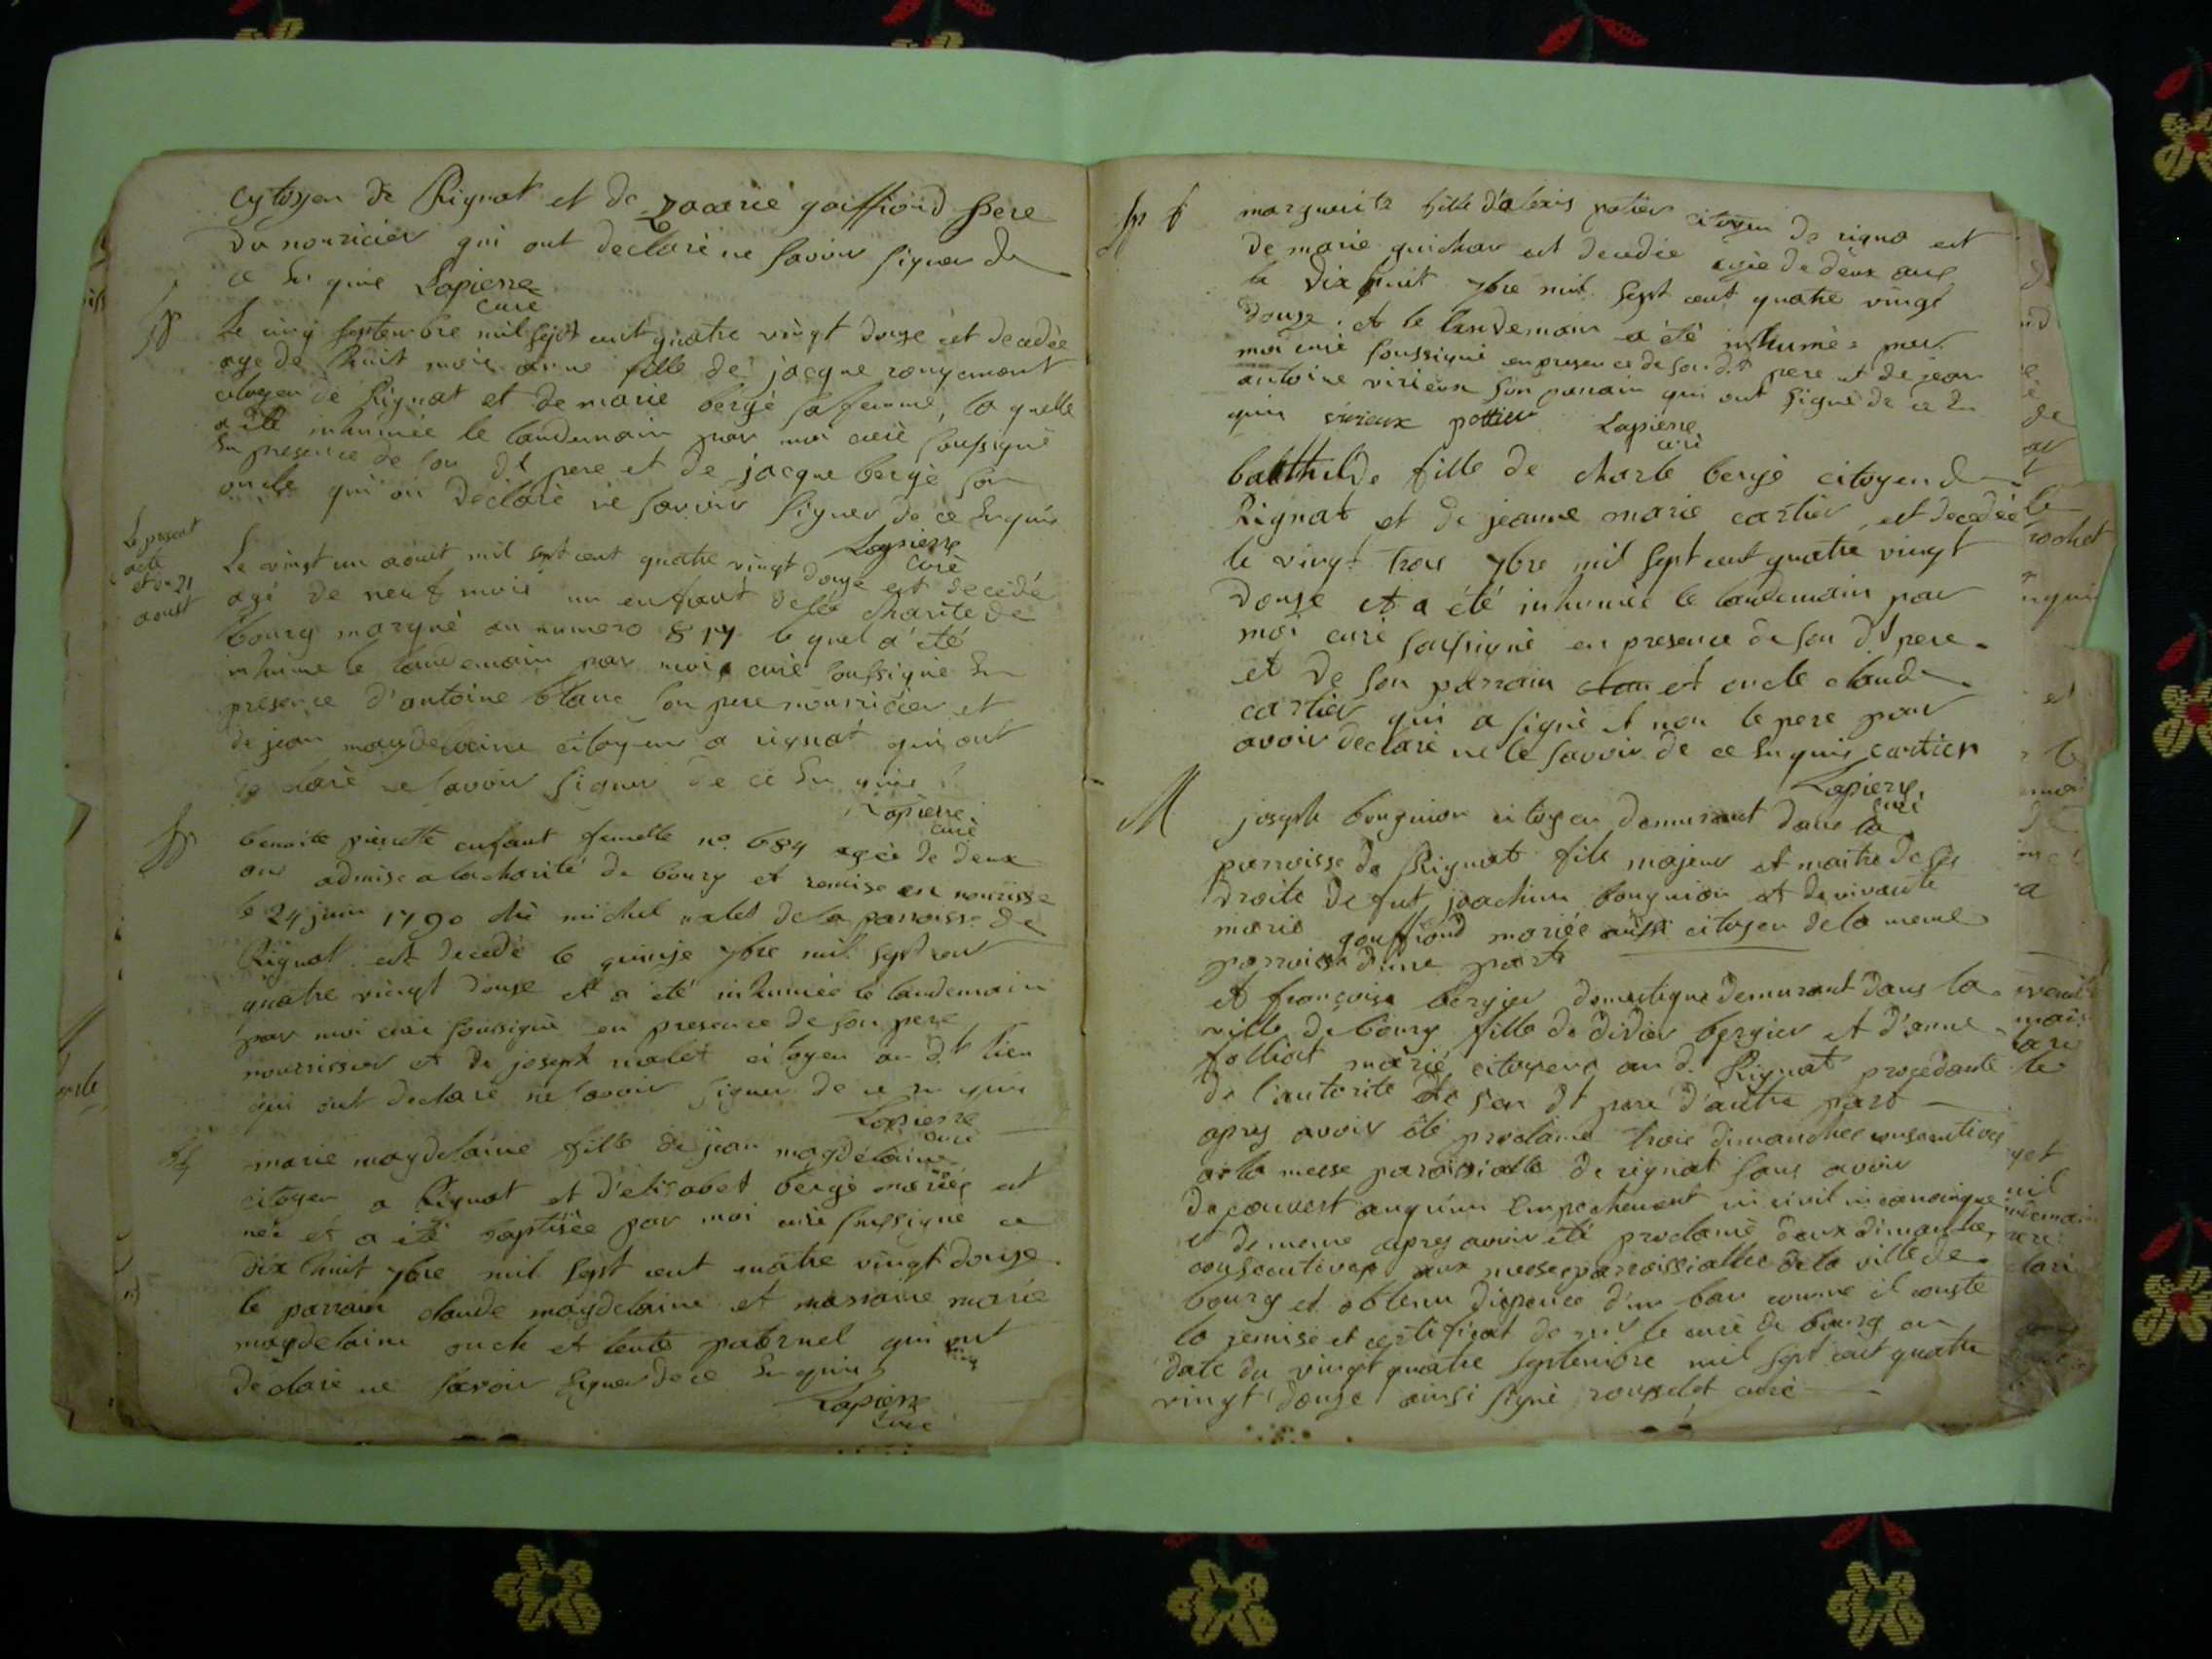 cytoyen de Rignat et de zacarie gaiffioud pere
du nouricier qui ont declaré ne savoir signer de
ce En quie Lapierre
curé
Sp
Le cinq septembre mil sept cent quatre vingt douze est decedée
age de huit mois anne fille de jacque rongemont
citoyen de Rignat et de marie bergé sa femme, la quelle
a été inhumée le landemain par moi curé soussigné
En presence de son dt pere et de jacque bergé son
oncle qui on declaré ne savoir signer de ce Enquis
Lapierre
curé
Le present
acte
et du 21
aoust
Le vingt un aout mil sept cent quatre vingt douze est decedé
agé de neuf mois un enfant de la charite de
bourg marqué au numero 817 le quel a été
inhumé le landemain par moi curé soussigné En
presence d'antoine blanc son pere nourricier et
de jean magdelaine citoyen a rignat qui ont
declaré ne savoir signer de ce En quis
Lapierre
curé
Sp
benoite pierrette enfant femelle no. 684 agée de deux
ans admise a la charité de bourg et remise en nourisse
le 24 juin 1790 chè michel nalet de la parroisse de
Rignat est decedé le quinze 7bre mil sept cent
quatre vingt douze et a été inhumée le landemain
par moi curé soussigné en presence de son pere
nourrissier et de joseph nalet citoyen au dt lieu
qui ont declaré ne savoir signer de ce en quis
Lapierre
curé
marie magdelaine fille de jean magdelaine
citoyen a Rignat et d'elisabet bergé mariés est
née et a été baptisée par moi curé soussigné ce
dix huit 7bre mil sept cent quatre vingt douze
le parrain claude magdelaine et marraine marie
magdelaine oncle et tente paternel qui ont
declaré ne savoir signer de ce En quis
Lapierre
curé
Sp
marguerite fille d'alexis potier citoyen de rigna et
de marie guichar est decedée agée de deux ans
le dix huit 7bre mil sept cent quatre vingt
douze. et le landemain a été inhumée par
moi curé soussigné en presence de son d.t pere et de jean
antoine virieux son parrain qui ont signé de ce En
quis virieux pottier Lapierre
curé
batthilde fille de charle bergé citoyen de
Rignat et de jeanne marie cartier est decedée
le vingt trois 7bre mil sept cent quatre vingt
douze et a été inhumée le landemain par
moi curé soussigné en presence de son dt pere
et de son parrain et oncle claude
cartier qui a signé et non le pere pour
avoir declaré ne le savoir de ce Enquis cartier
Lapierre
curé
M
joseph bouguion citoyen demurant dans la
parroisse de Rignat fils majeur et maitre de ses
droits de fut joachim bouguion et de vivante
marie gouffioud mariée citoyen de la meme
parroisse d'une part
et françoise bergier domestique demurant dans la
ville de bourg fille de didier bergier et d'anne
folliat marié citoyens au d. Rignat procedante
de l'autorité de son dt pere d'autre part
apres avoir été proclamé trois dimanches consecutives
a la messe paroissialle de rignat sans avoir
decouvert auqu'un Empechement ni civil ni canonique
et de meme apres avoir été proclamé deux dimanches
consecutives aux messes parroissialles de la ville de
bourg et obtenu dispence d'un ban comme il conste
la remise et certificat de mr le curé de bourg en
date du vingt quatre septembre mil sept cent quatre
vingt douze ainsi signé rousselet curé